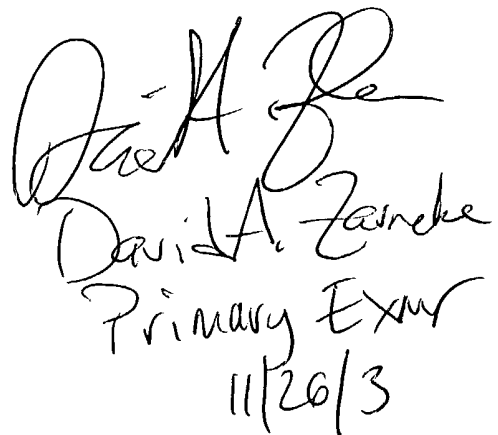 David A. Zarneke
Primary Exmr
11/26/3